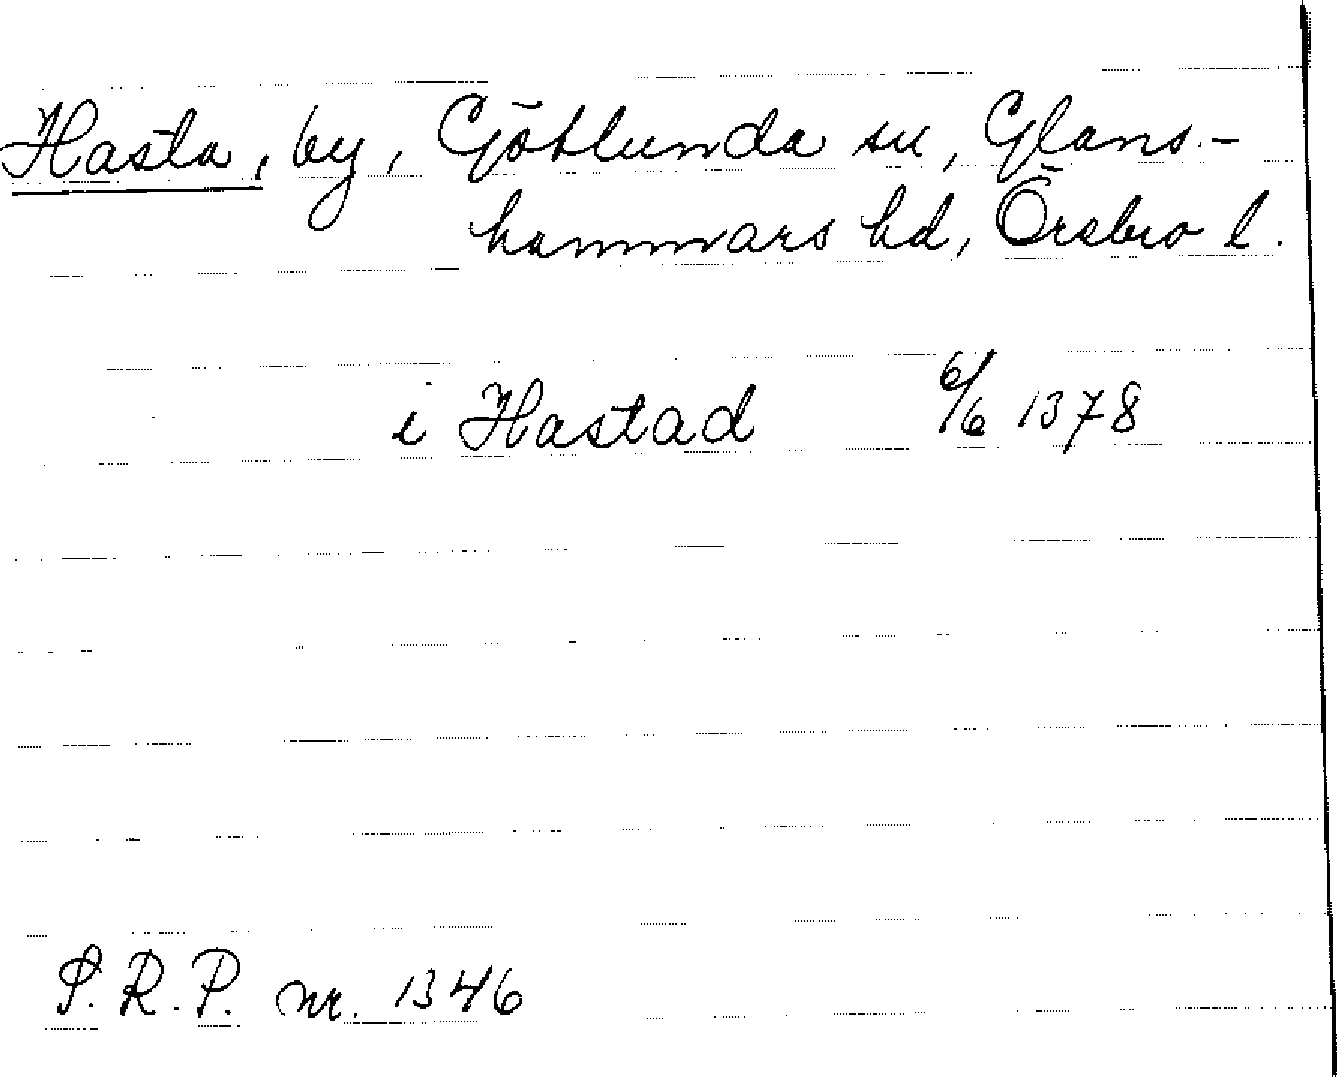 Hasta, by, Götlunda sn, Glans-
hammars hd, Örebro l.
i Hastad 6/6 1378
S.R.P. nr. 1346